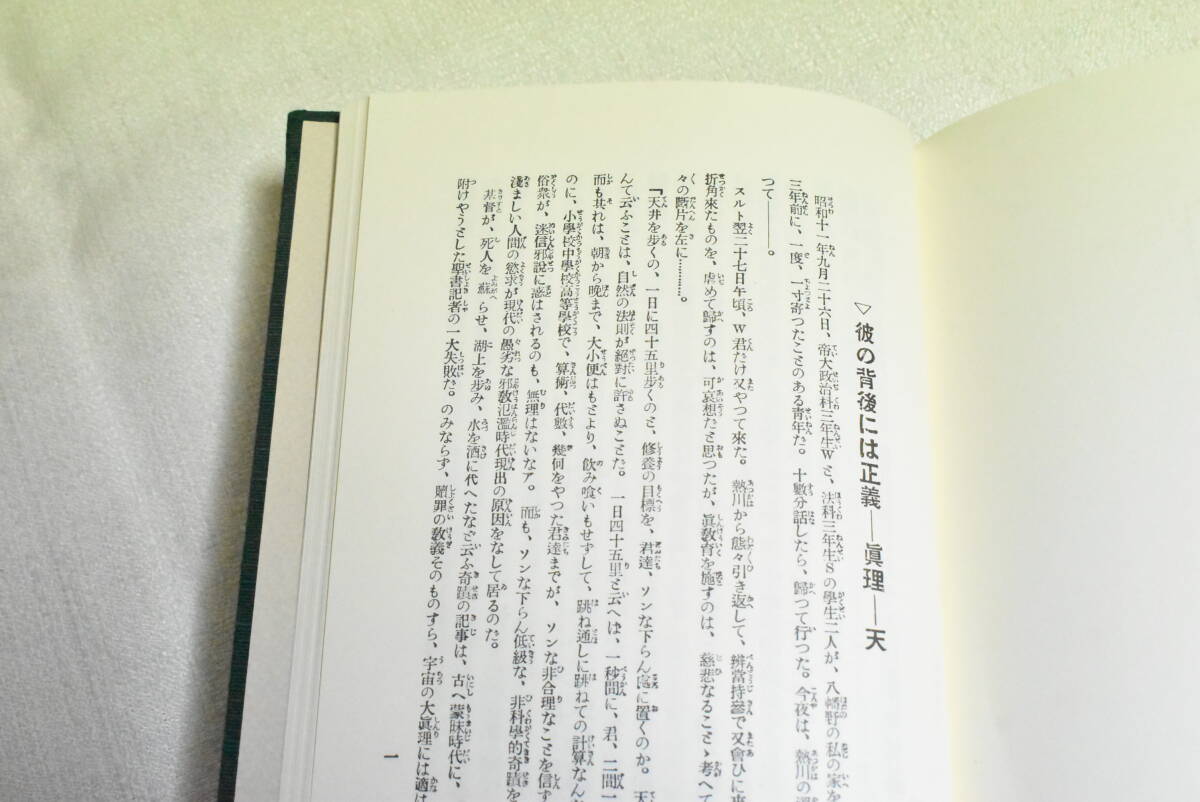 ▽彼の背後には正義―眞理―天
昭和十一年九月二十六日、帝大政治科三年生Wと、法科三年生Sの學生二人が、八幡野の私の家を
三年前に、一度、一寸寄つたことのある靑年だ。十數分話したら、歸つて行つた。今夜は、熱川の
つて――。
スルト翌二十七日午頃、W君だけ又やつて來た。熱川から態々引き返して、辨當持參で又會ひに來
折角來たものを、虐めて歸すのは、可哀想だと思つたが、眞敎育を施すのは、慈悲なることゝ考へて
々の斷片を左に………。
「天井を步くの、一日に四十五里步くのと、修養の目標を、君達、ソンな下らん處に置くのか。天
んて云ふことは、自然の法則が絕對に許さぬことだ。一日四十五里と云へば、一秒間に、君、二間一
而も其れは、朝から晩まで、大小便はもとより、飮み喰いもせずして、跳ね通しに跳ねての計算なん
のに、小學校中學校高等學校で、算術、代數、幾何をやつた君達までが、ソンな非合理なことを信ず
俗衆が、迷信邪說に惑はされるのも、無理はないなア。而も、ソンな下らん低級な、非科學的奇蹟を
淺ましい人間の慾求が現代の愚劣な邪敎氾濫時代現出の原因をなして居るのだ。
基督が、死人を蘇らせ、湖上を步み、水を酒に代へたなど云ふ奇蹟の記事は、古へ蒙昧時代に、
附けやうとした聖書記者の一大失敗だ。のみならず、贖罪の敎義そのものすら、宇宙の大眞理には適は
一